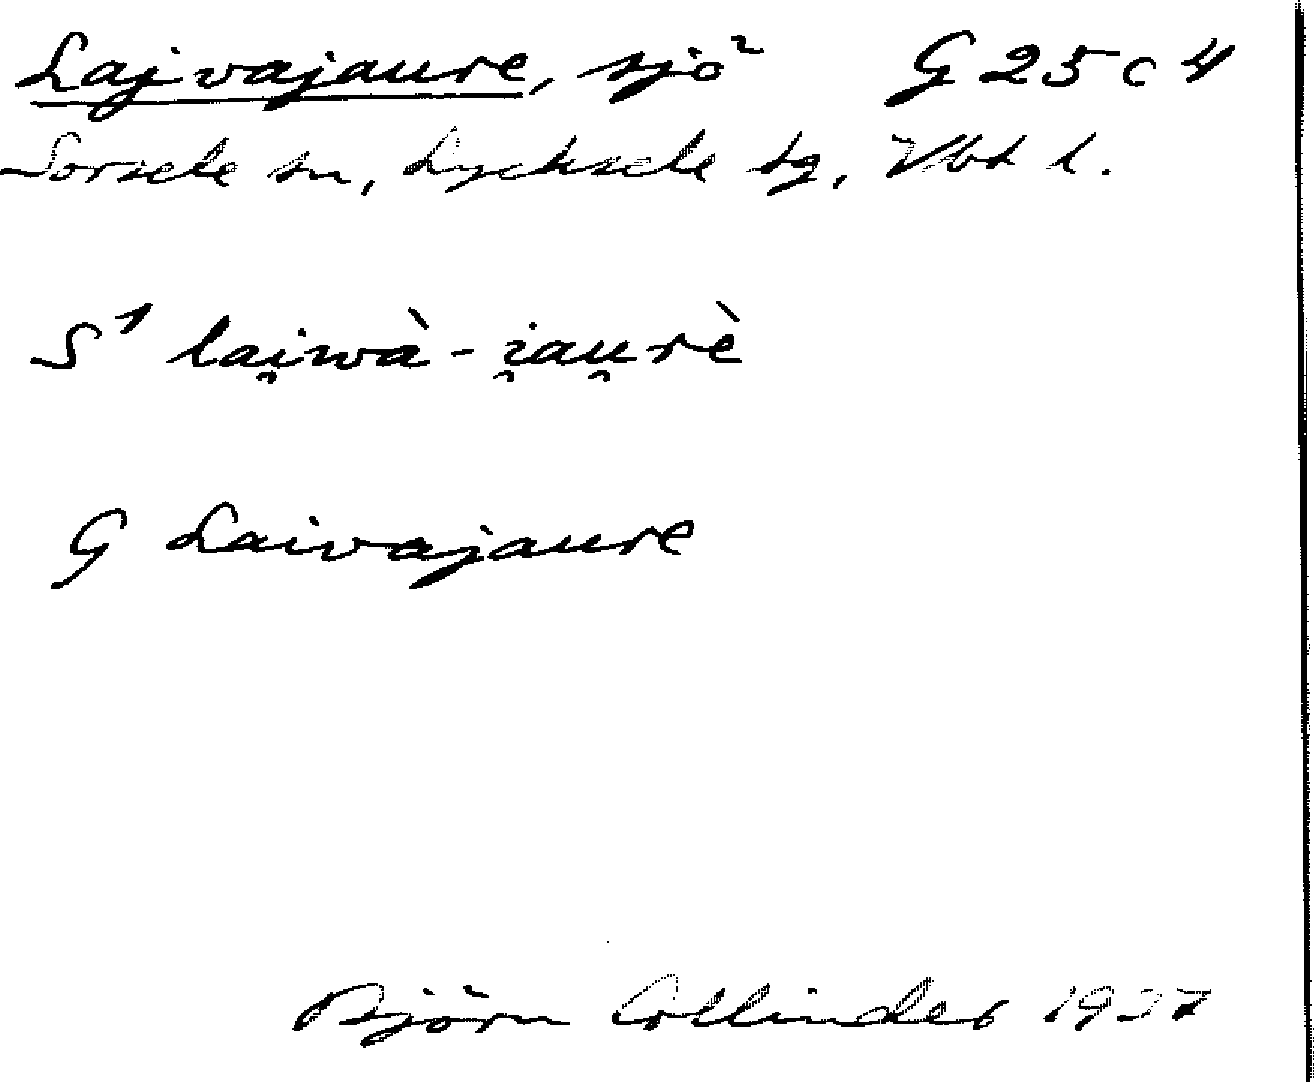 Lajvajaure, sjö G 25 c 4
Sorsele sn, Lycksele tg, Vbt l.
S¹ lai̯wà-i̯au̯rè
G Laivajaure
Björn Collinder 1937